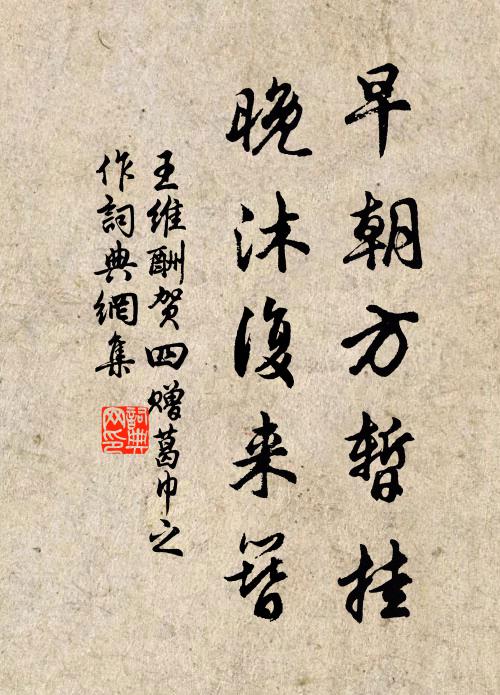 早朝方暂挂
晚沐復来簪
王维酬贺四赠葛巾之
作詞典網集
詞典
网印